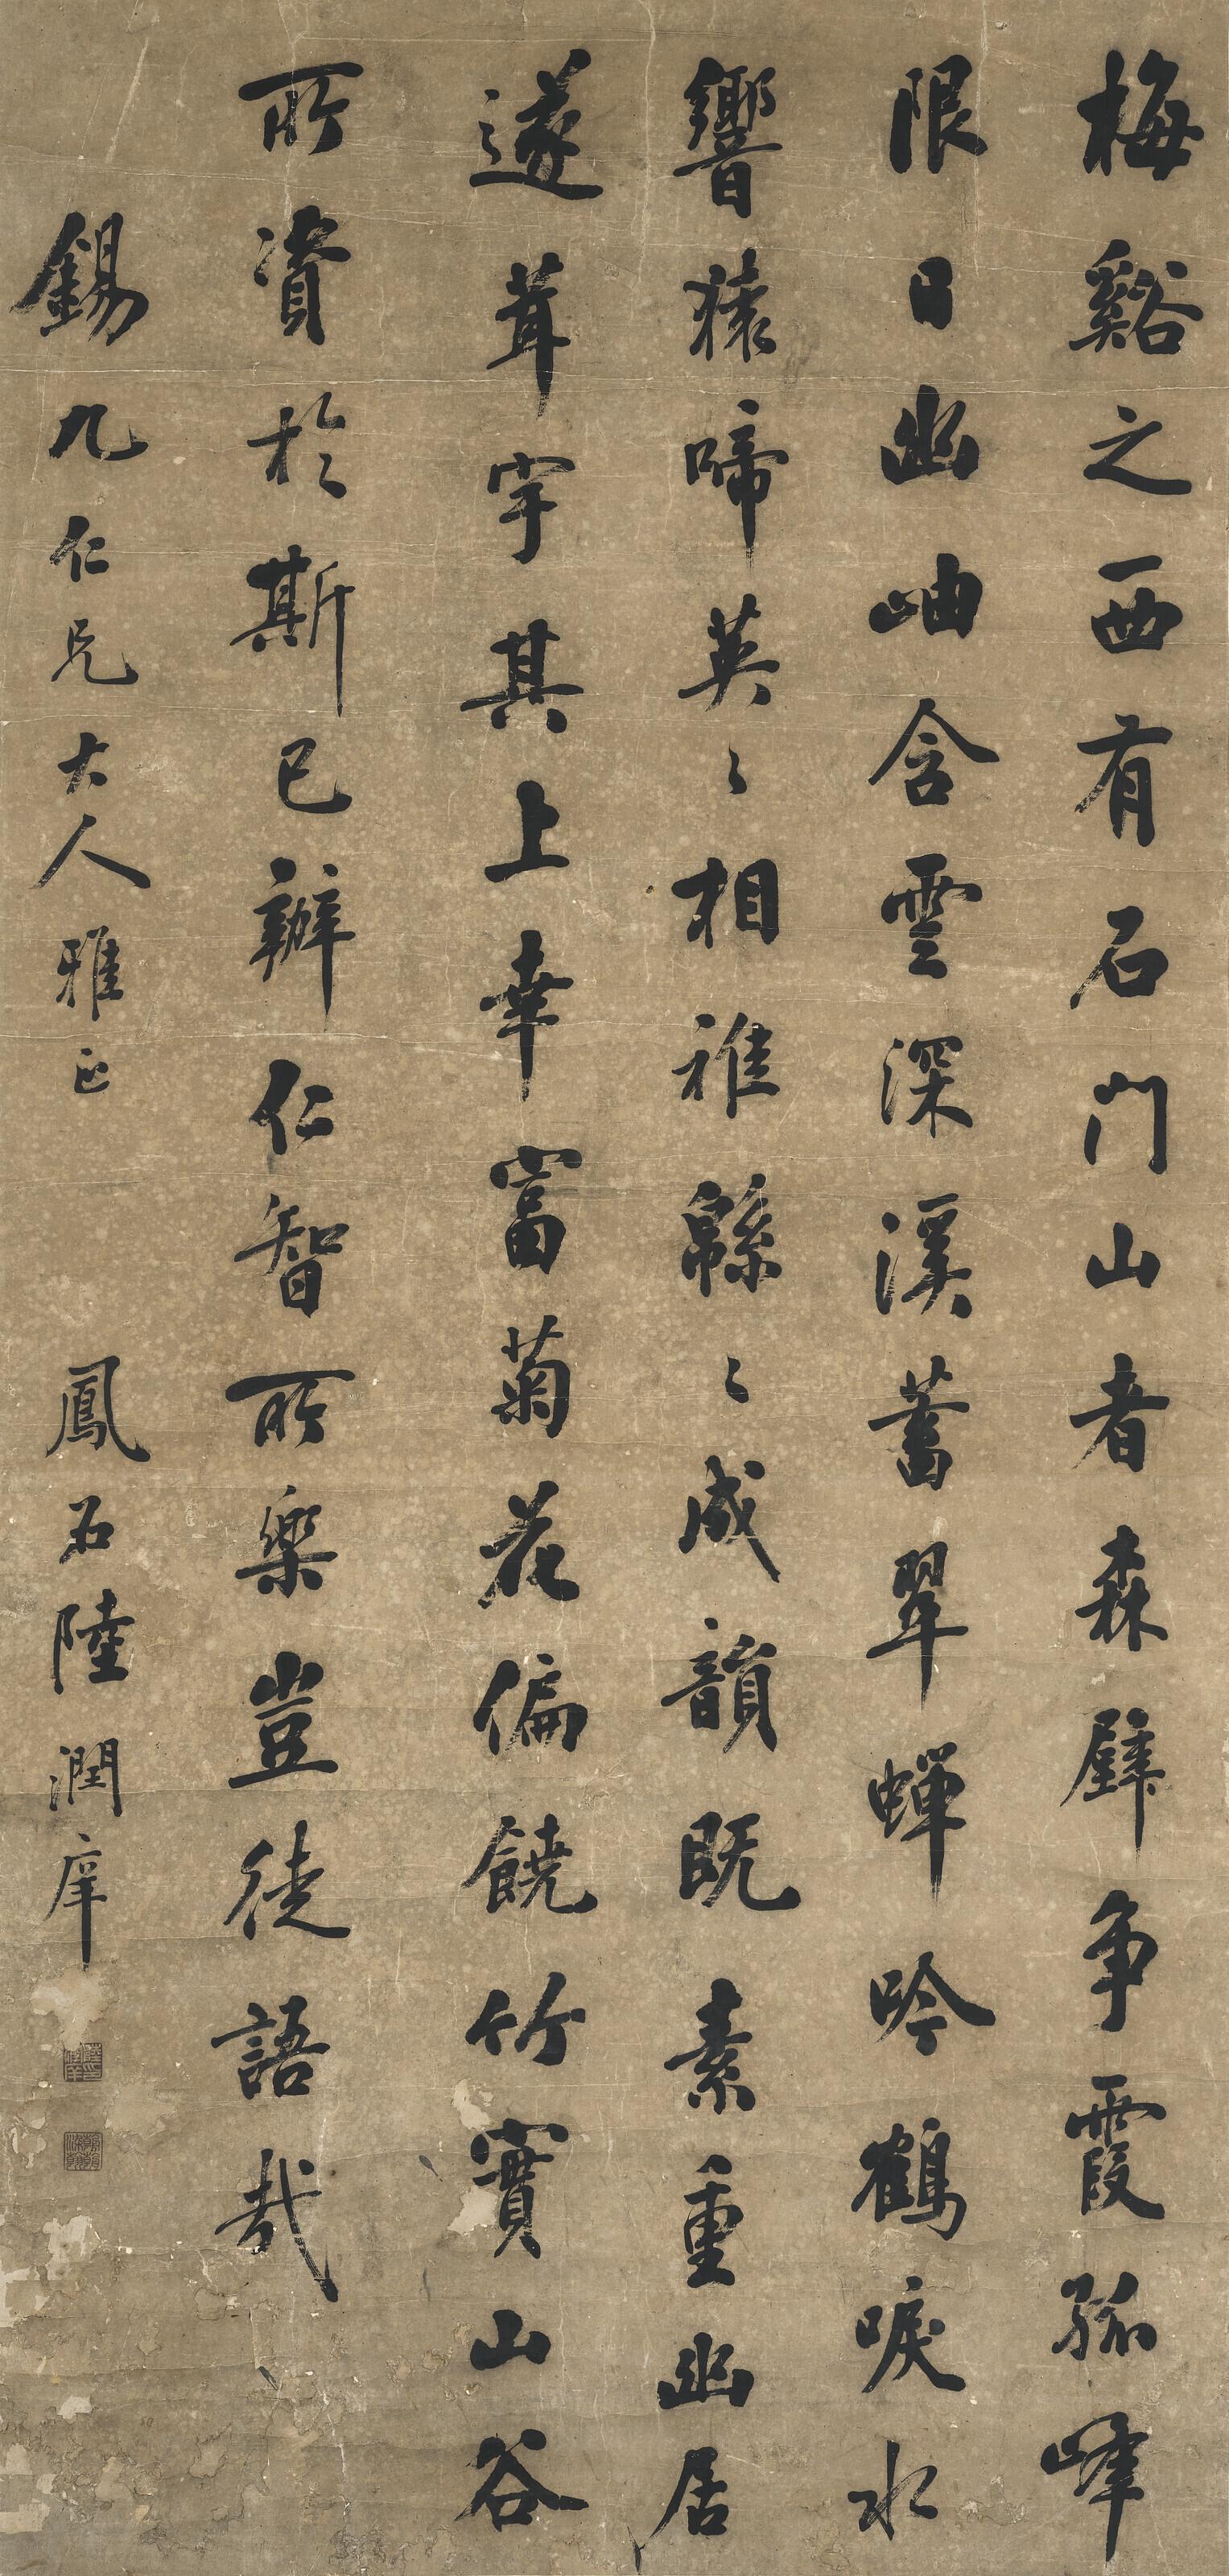 梅谿之西有石門山者森壁争霞孤峰
限日幽岫含雲深溪蓄翠蟬吟鶴唳水
響猿啼英〻相雜綿〻成韻既素重幽居
遂葺宇其上幸富菊花偏饒竹實山谷
所資於斯已辦仁智所樂豈徒語哉
錫九仁兄大人雅正
鳳石陸潤庠